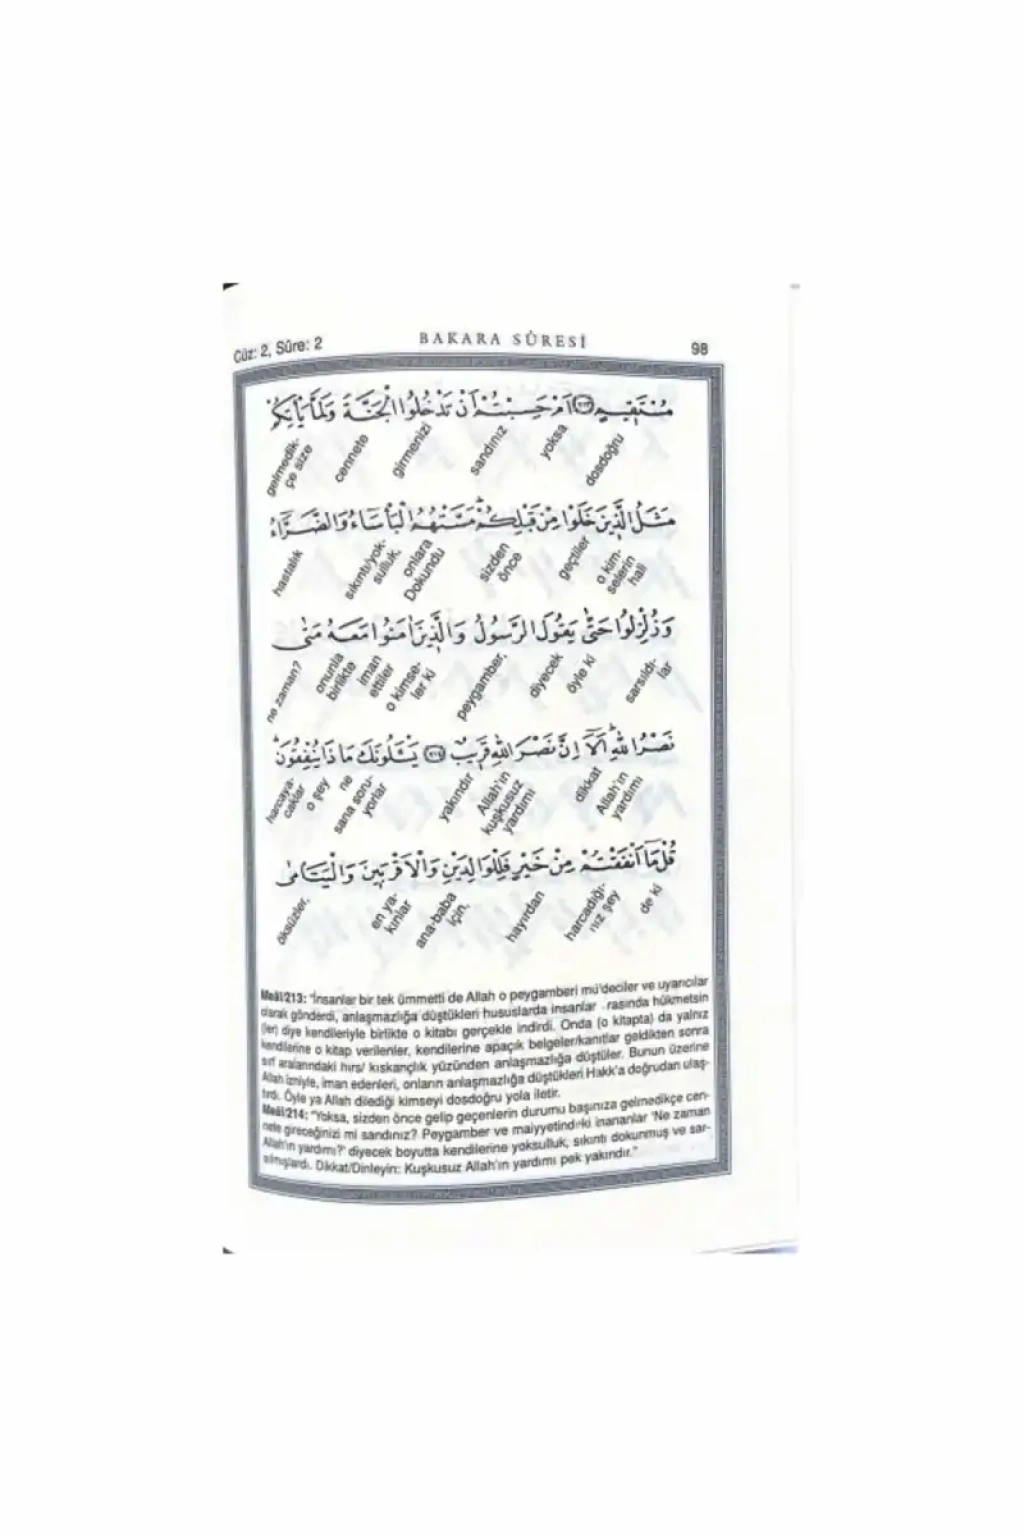 Cüz: 2, Sûre: 2 BAKARA SÛRESİ 98
مُسْتَقِيمٍ ﴿٢١٣﴾ اَمْ حَسِبْتُمْ اَنْ تَدْخُلُوا الْجَنَّةَ وَلَمَّا يَأْتِكُمْ
dosdoğru yoksa sandınız girmenizi cennete gelmedik-çe size
مَثَلُ الَّذِينَ خَلَوْا مِنْ قَبْلِكُمْ مَسَّتْهُمُ الْبَأْسَاءُ وَالضَّرَّاءُ
o kim-selerin hali geçtiler sizden önce onlara Dokundu sıkıntı/yok-sulluk, hastalık
وَزُلْزِلُوا حَتّٰى يَقُولَ الرَّسُولُ وَالَّذِينَ اٰمَنُوا مَعَهُ مَتٰى
sarsıldı-lar öyle ki diyecek peygamber, o kimse-ler ki iman ettiler onunla birlikte ne zaman?
نَصْرُ اللّٰهِ اَلَٓا اِنَّ نَصْرَ اللّٰهِ قَرِيبٌ ﴿٢١٤﴾ يَسْـَٔلُونَكَ مَا ذَا يُنْفِقُونَ
Allah'ın yardımı dikkat Allah'ın kuşkusuz yardımı yakındır sana soru-yorlar ne o şey harcaya-caklar
قُلْ مَٓا اَنْفَقْتُمْ مِنْ خَيْرٍ فَلِلْوَالِدَيْنِ وَالْاَقْرَبِينَ وَالْيَتَامٰى
de ki harcadığı-nız şey hayırdan ana-baba için, en ya-kınlar öksüzler,
Meâl/213: "İnsanlar bir tek ümmetti de Allah o peygamberi mü'deciler ve uyarıcılar
olarak gönderdi, anlaşmazlığa düştükleri hususlarda insanlar rasında hükmetsin
(ler) diye kendileriyle birlikte o kitabı gerçekle indirdi. Onda (o kitapta) da yalnız
kendilerine o kitap verilenler, kendilerine apaçık belgeler/kanıtlar geldikten sonra
sırf aralarındaki hırs/ kıskançlık yüzünden anlaşmazlığa düştüler. Bunun üzerine
Allah izniyle, iman edenleri, onların anlaşmazlığa düştükleri Hakk'a doğrudan ulaş-
tırdı. Öyle ya Allah dilediği kimseyi dosdoğru yola iletir.
Meâl/214: "Yoksa, sizden önce gelip geçenlerin durumu başınıza gelmedikçe cen-
nete gireceğinizi mi sandınız? Peygamber ve maiyyetindeki inananlar 'Ne zaman
Allah'ın yardımı?' diyecek boyutta kendilerine yoksulluk, sıkıntı dokunmuş ve sar-
sılmışlardı. Dikkat/Dinleyin: Kuşkusuz Allah'ın yardımı pek yakındır."